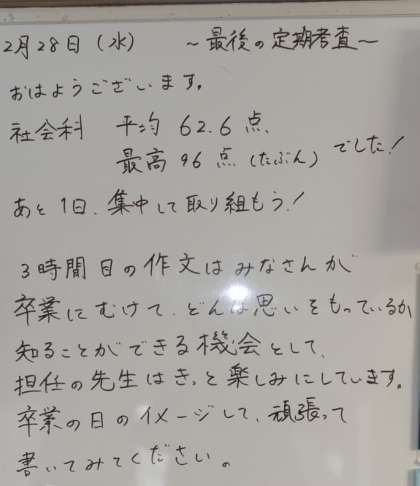 2月28日(水) ～最後の定期考査～
おはようございます。
社会科 平均 62.6点、
最高 96点(たぶん)でした!
あと1日、集中して取り組もう!
3時間目の作文はみなさんが
卒業にむけて、どんな思いをもっているか
知ることができる機会として、
担任の先生はきっと楽しみにしています。
卒業の日のイメージして、頑張って
書いてみてください。